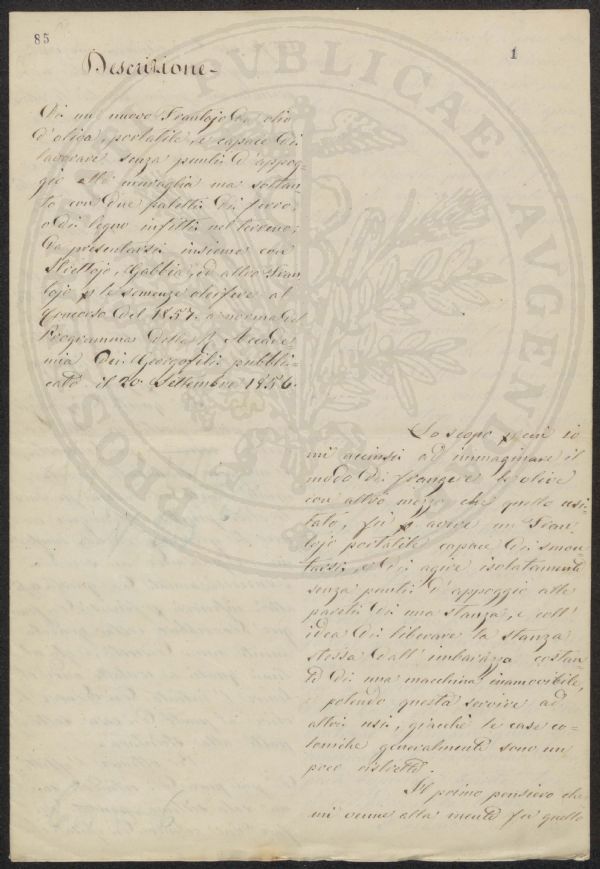 85
1
Descrizione -
Di un nuovo Frantojo da olio
d'oliva, portatile, e capace di
lavorare senza punti d'appog-
gio alla muraglia ma soltan-
to con due paletti di ferro,
o di legno infitti nel terreno;
da presentarsi insieme con
Strettojo, Gabbia, ed altro Fran
tojo p le semenze oleifere al
Concorso del 1857. a norma del
Programma della R. Accade-
mia dei Georgofili pubbli-
cato il 20 Settembre 1856.
Lo scopo p cui io
mi accinsi ad immaginare il
modo di frangere le olive
con altro mezzo che quello usi-
tato, fu p avere un Fran
tojo portatile capace di smon
tarsi, e di agire isolatamente
senza punti d'appoggio alle
pareti di una stanza, e coll'
idea di liberare la stanza
stessa dall'imbarazzo costan
te di una macchina inamovibile,
potendo questa servire ad
altri usi, giacchè le case co-
loniche generalmente sono un
poco ristrette.
Il primo pensiero che
mi venne alla mente fu quello
PVBLICAE
AVGENDAE
PROS